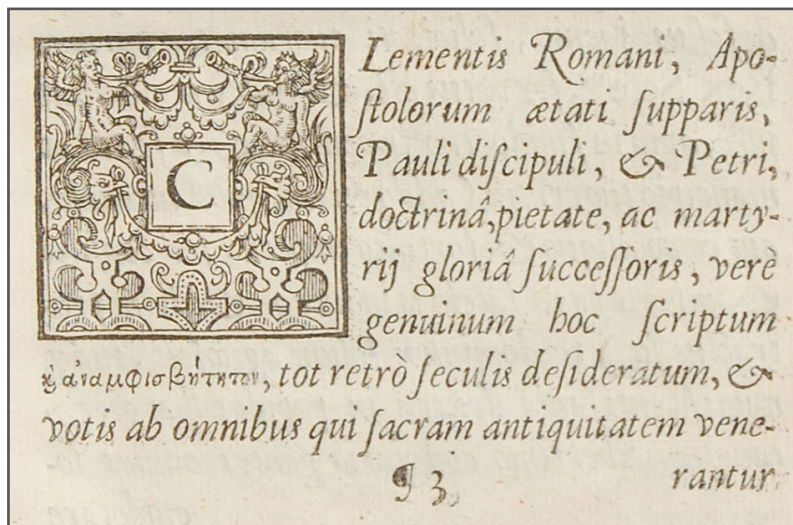 CLementis Romani, Apo-
ſtolorum ætati ſupparis,
Pauli diſcipuli, & Petri,
doctrinâ, pietate, ac marty-
rij gloriâ ſucceſſoris, verè
genuinum hoc ſcriptum
ϗ ἀναμφισβήτητον, tot retrò ſeculis deſideratum, &
votis ab omnibus qui ſacram antiquitatem vene-
¶ 3, rantur